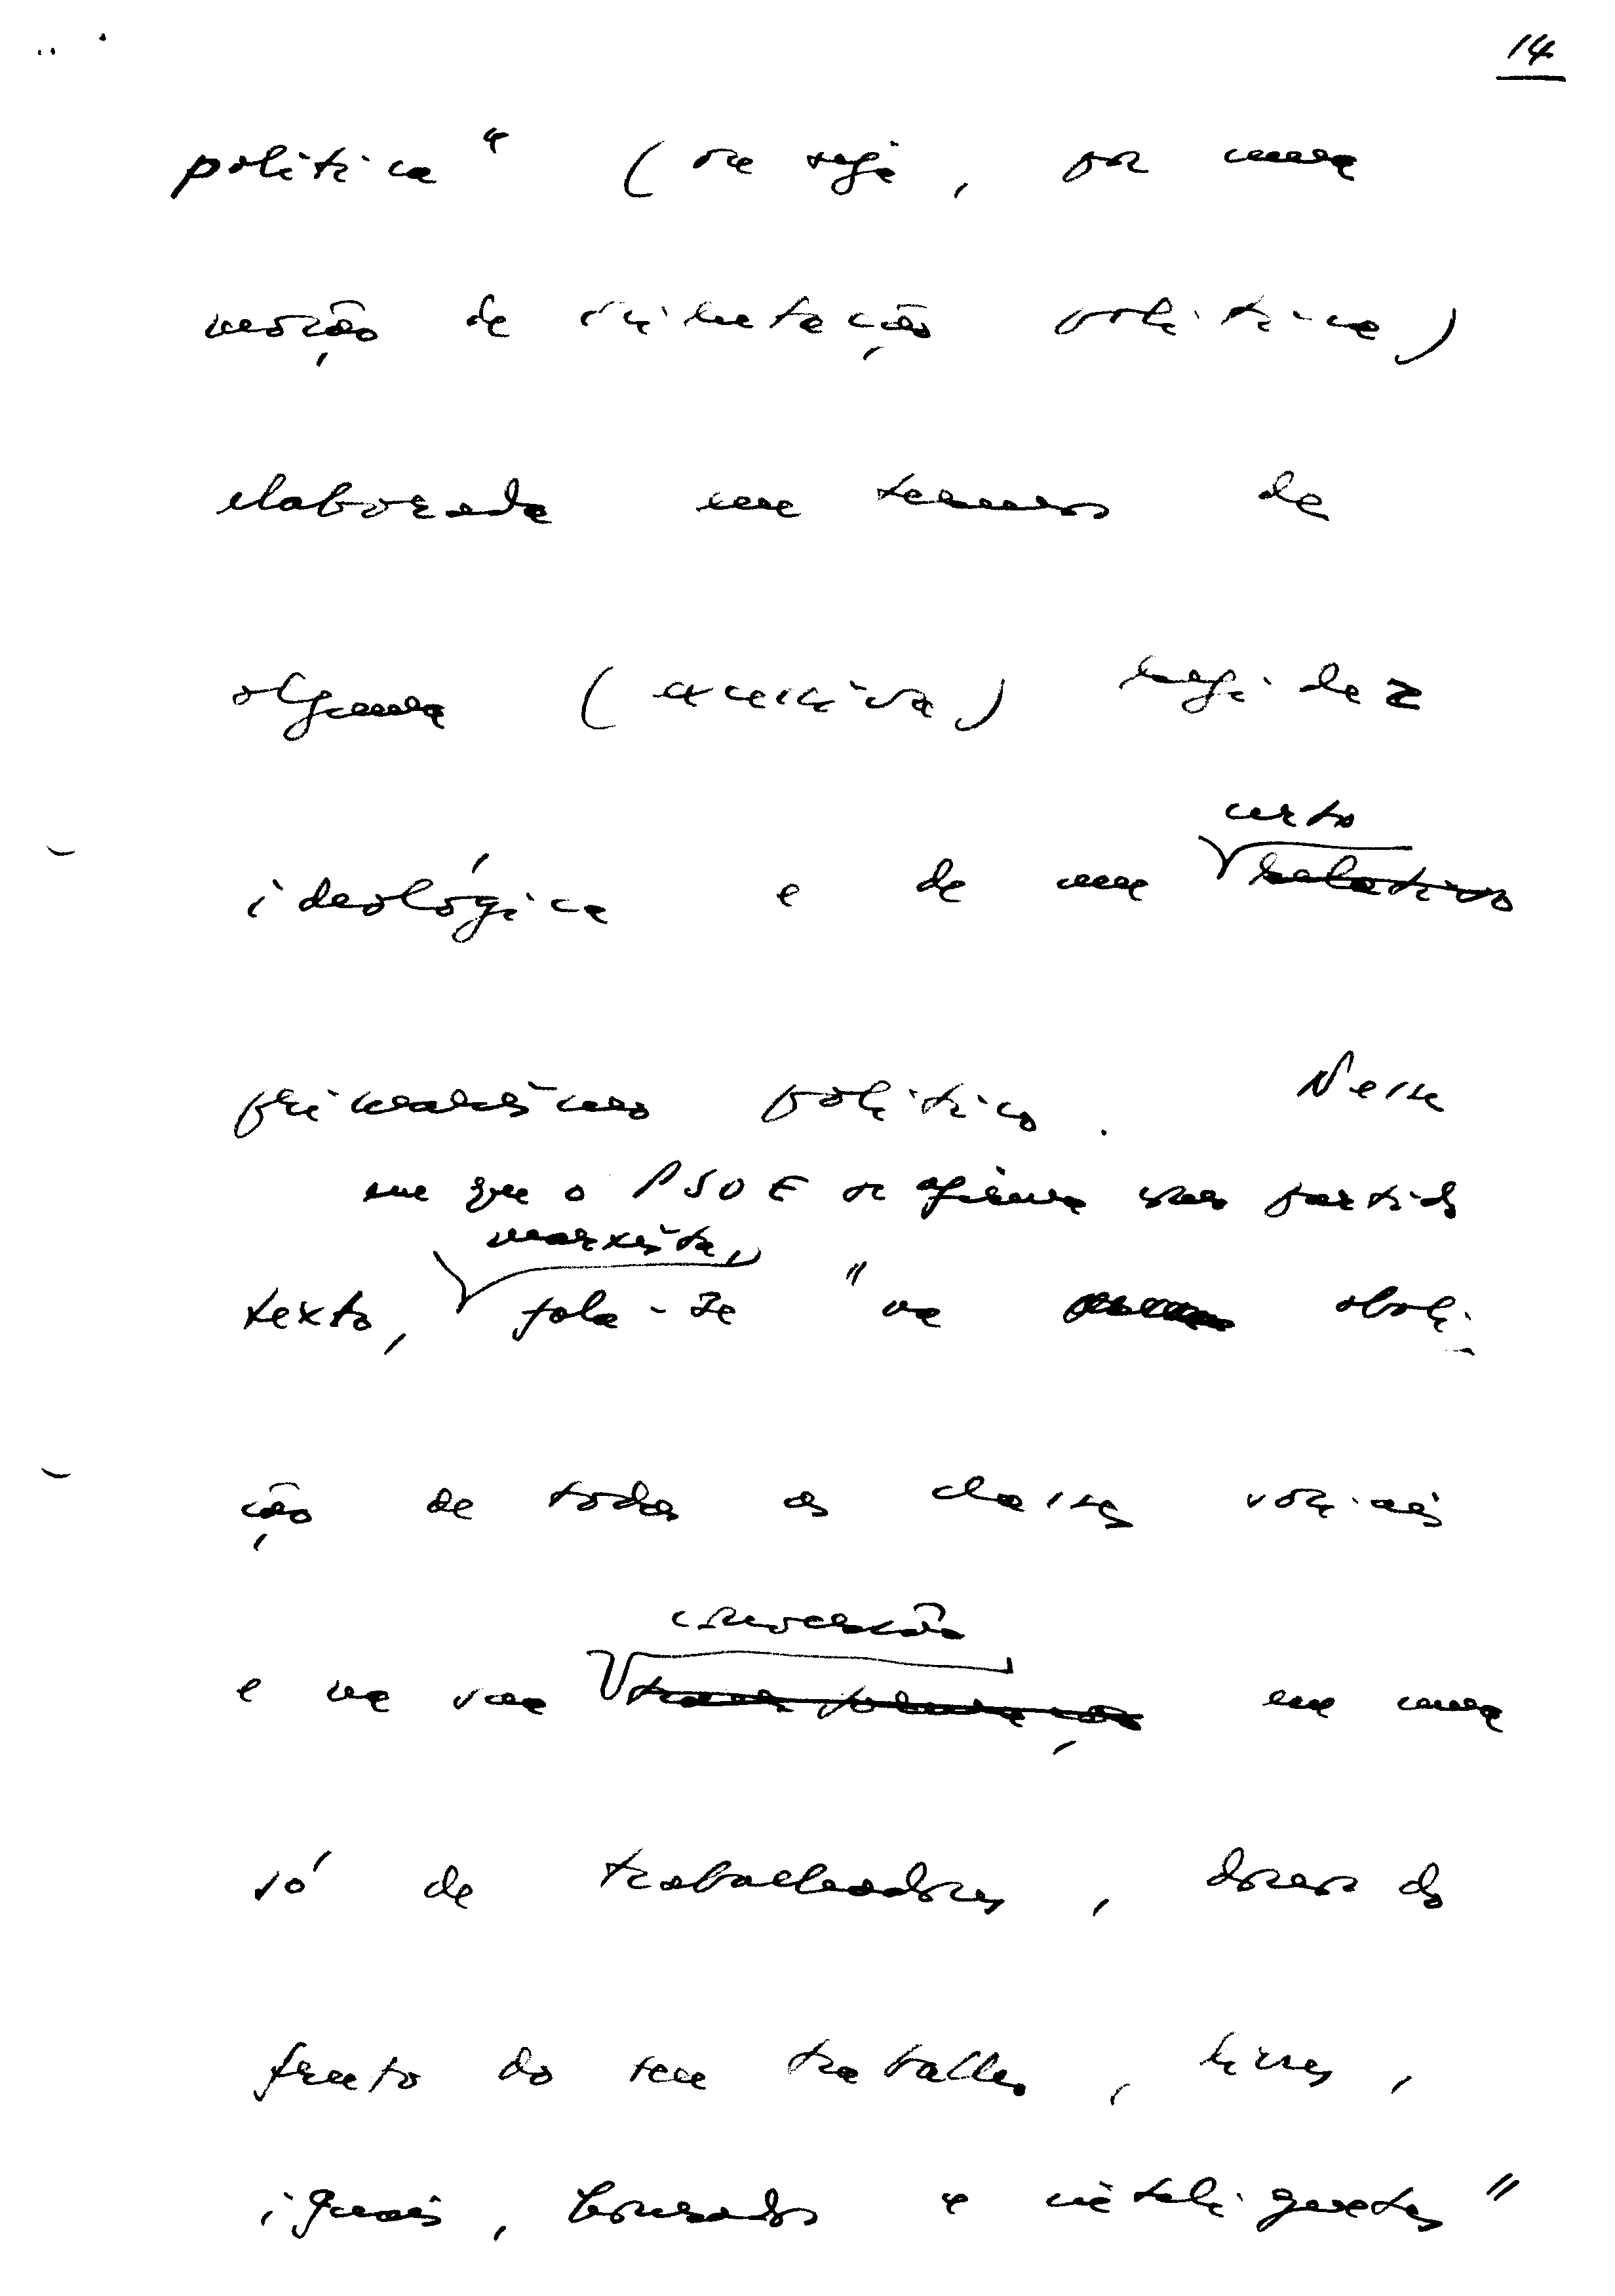 14
política" (ou seja, por uma
noção de orientação política)
elaborada em termos de
alguma (excessiva) rigidez
certo
ideológica e de um relativo
primarismo político. Nesse
em que o PSOE se afirma como partido
marxista,
texto, fala-se "na aboli-
ção de todas as classes sociais
conversão
e na sua transformação em uma
só de trabalhadores, donos do
fruto do seu trabalho, livres,
iguais, honrados e inteligentes"